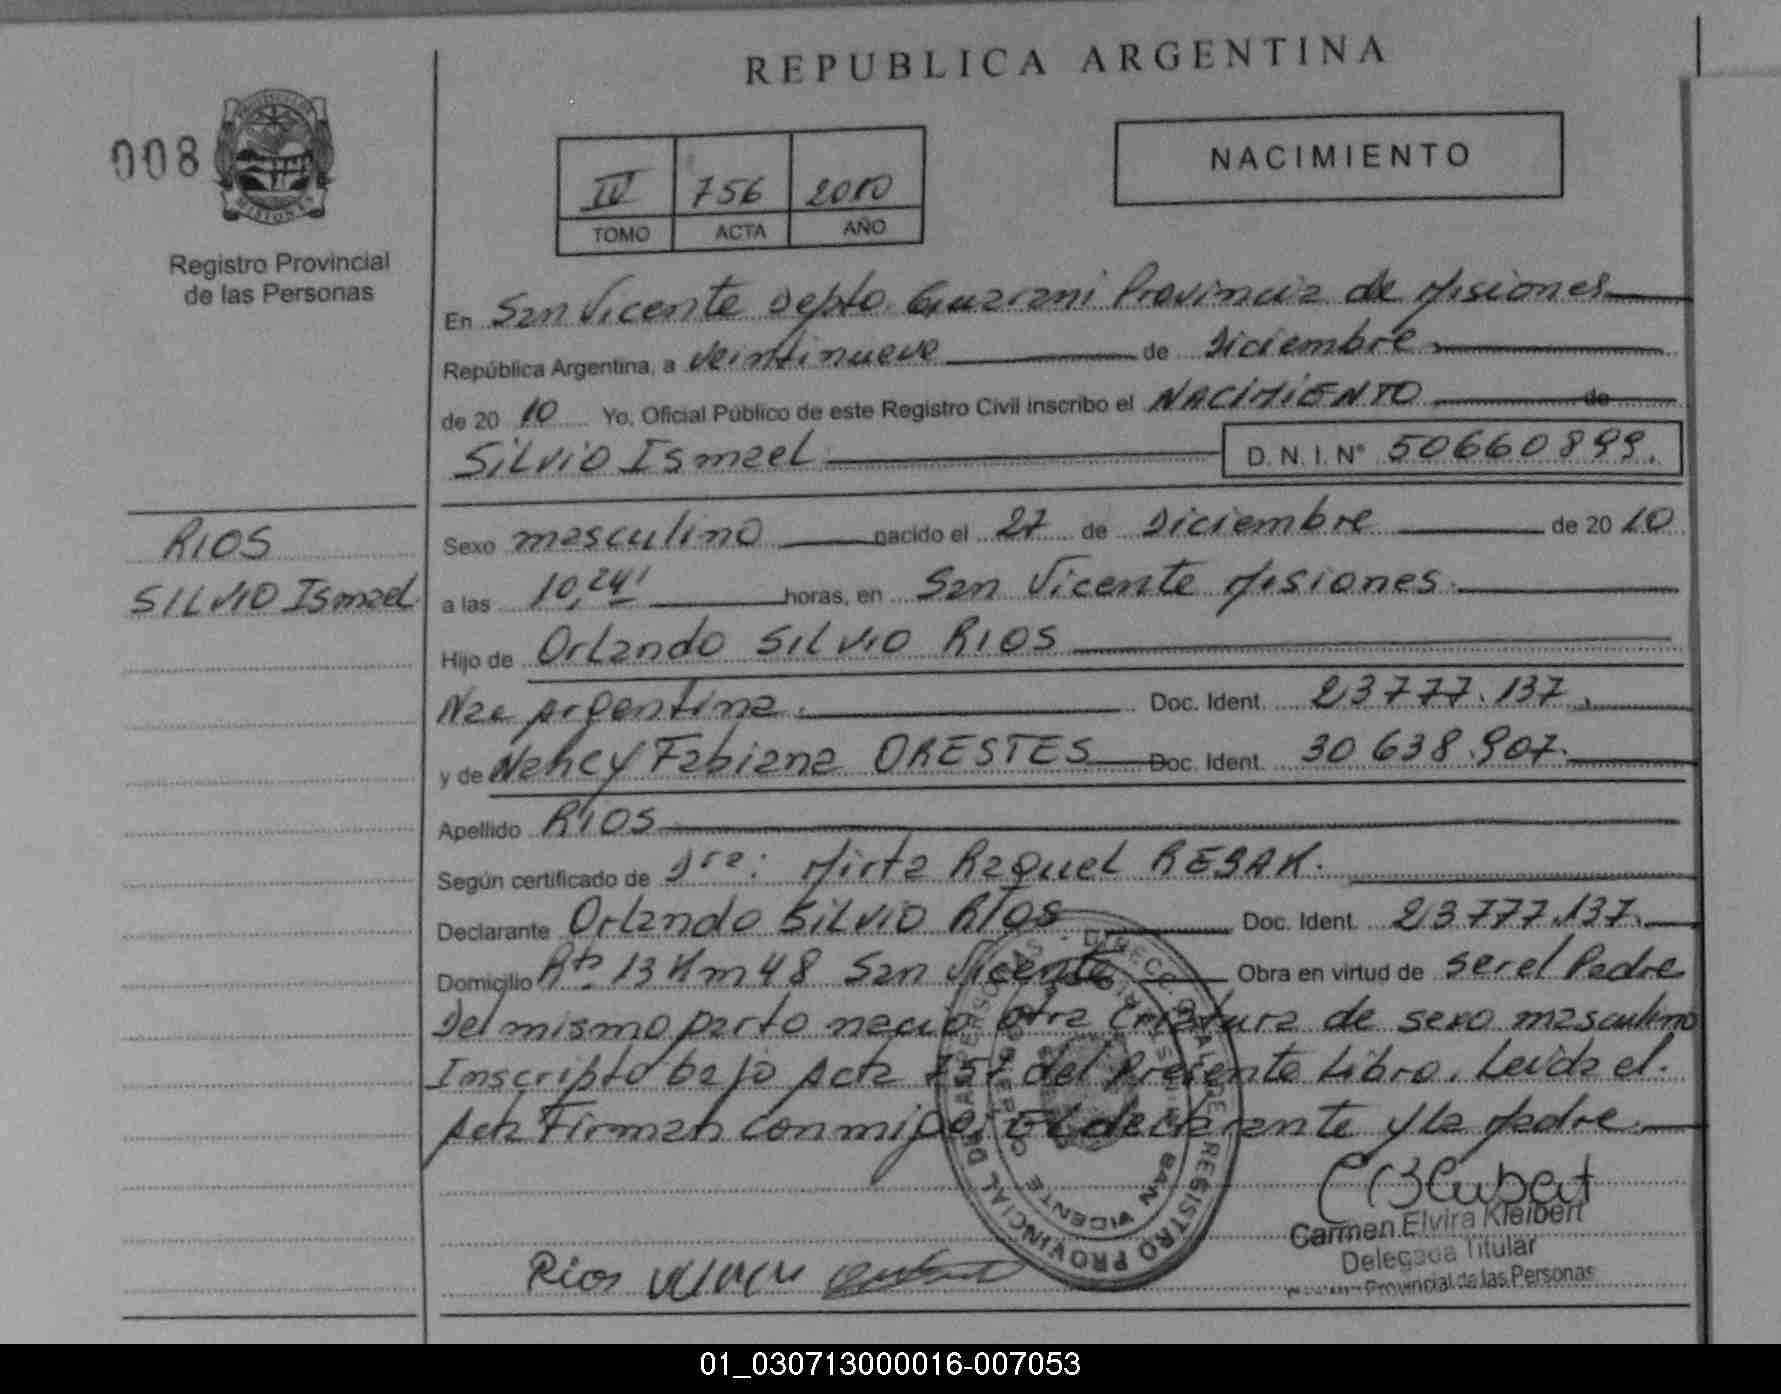 REPUBLICA ARGENTINA
008
MISIONES
Registro Provincial
de las Personas
IV 756 2010
TOMO ACTA AÑO
NACIMIENTO
En San Vicente Depto. Guarani Provincia de Misiones
República Argentina, a veintinueve de Diciembre
de 20 10 Yo, Oficial Público de este Registro Civil inscribo el NACIMIENTO de
Silvio Ismael D. N. I. Nº 50660899.
RIOS
SILVIO Ismael
Sexo masculino nacido el 27 de Diciembre de 20 10
a las 10,24' horas, en San Vicente Misiones.
Hijo de Orlando Silvio RIOS
Nac Argentina. Doc. Ident. 23777.137.
y de Nancy Fabiana ORESTES Doc. Ident. 30638.907.
Apellido RIOS
Según certificado de Dra: Mirta Raquel
Declarante Orlando Silvio Rios Doc. Ident. 23777.137.
Domicilio Rta 13 Km 48 San Vicente Obra en virtud de ser el Padre
Del mismo parto nació otra criatura de sexo masculino
Inscripto bajo Acta 757 del Presente Libro. Leida el
Acta Firman conmigo, El declarante y la Madre.
DIRECC. GRAL. DE REGISTRO PROVINCIAL DE LAS PERSONAS
SAN VICENTE
Carmen Elvira Kleibert
Delegada Titular
Provincial de las Personas
Rios
01_030713000016-007053